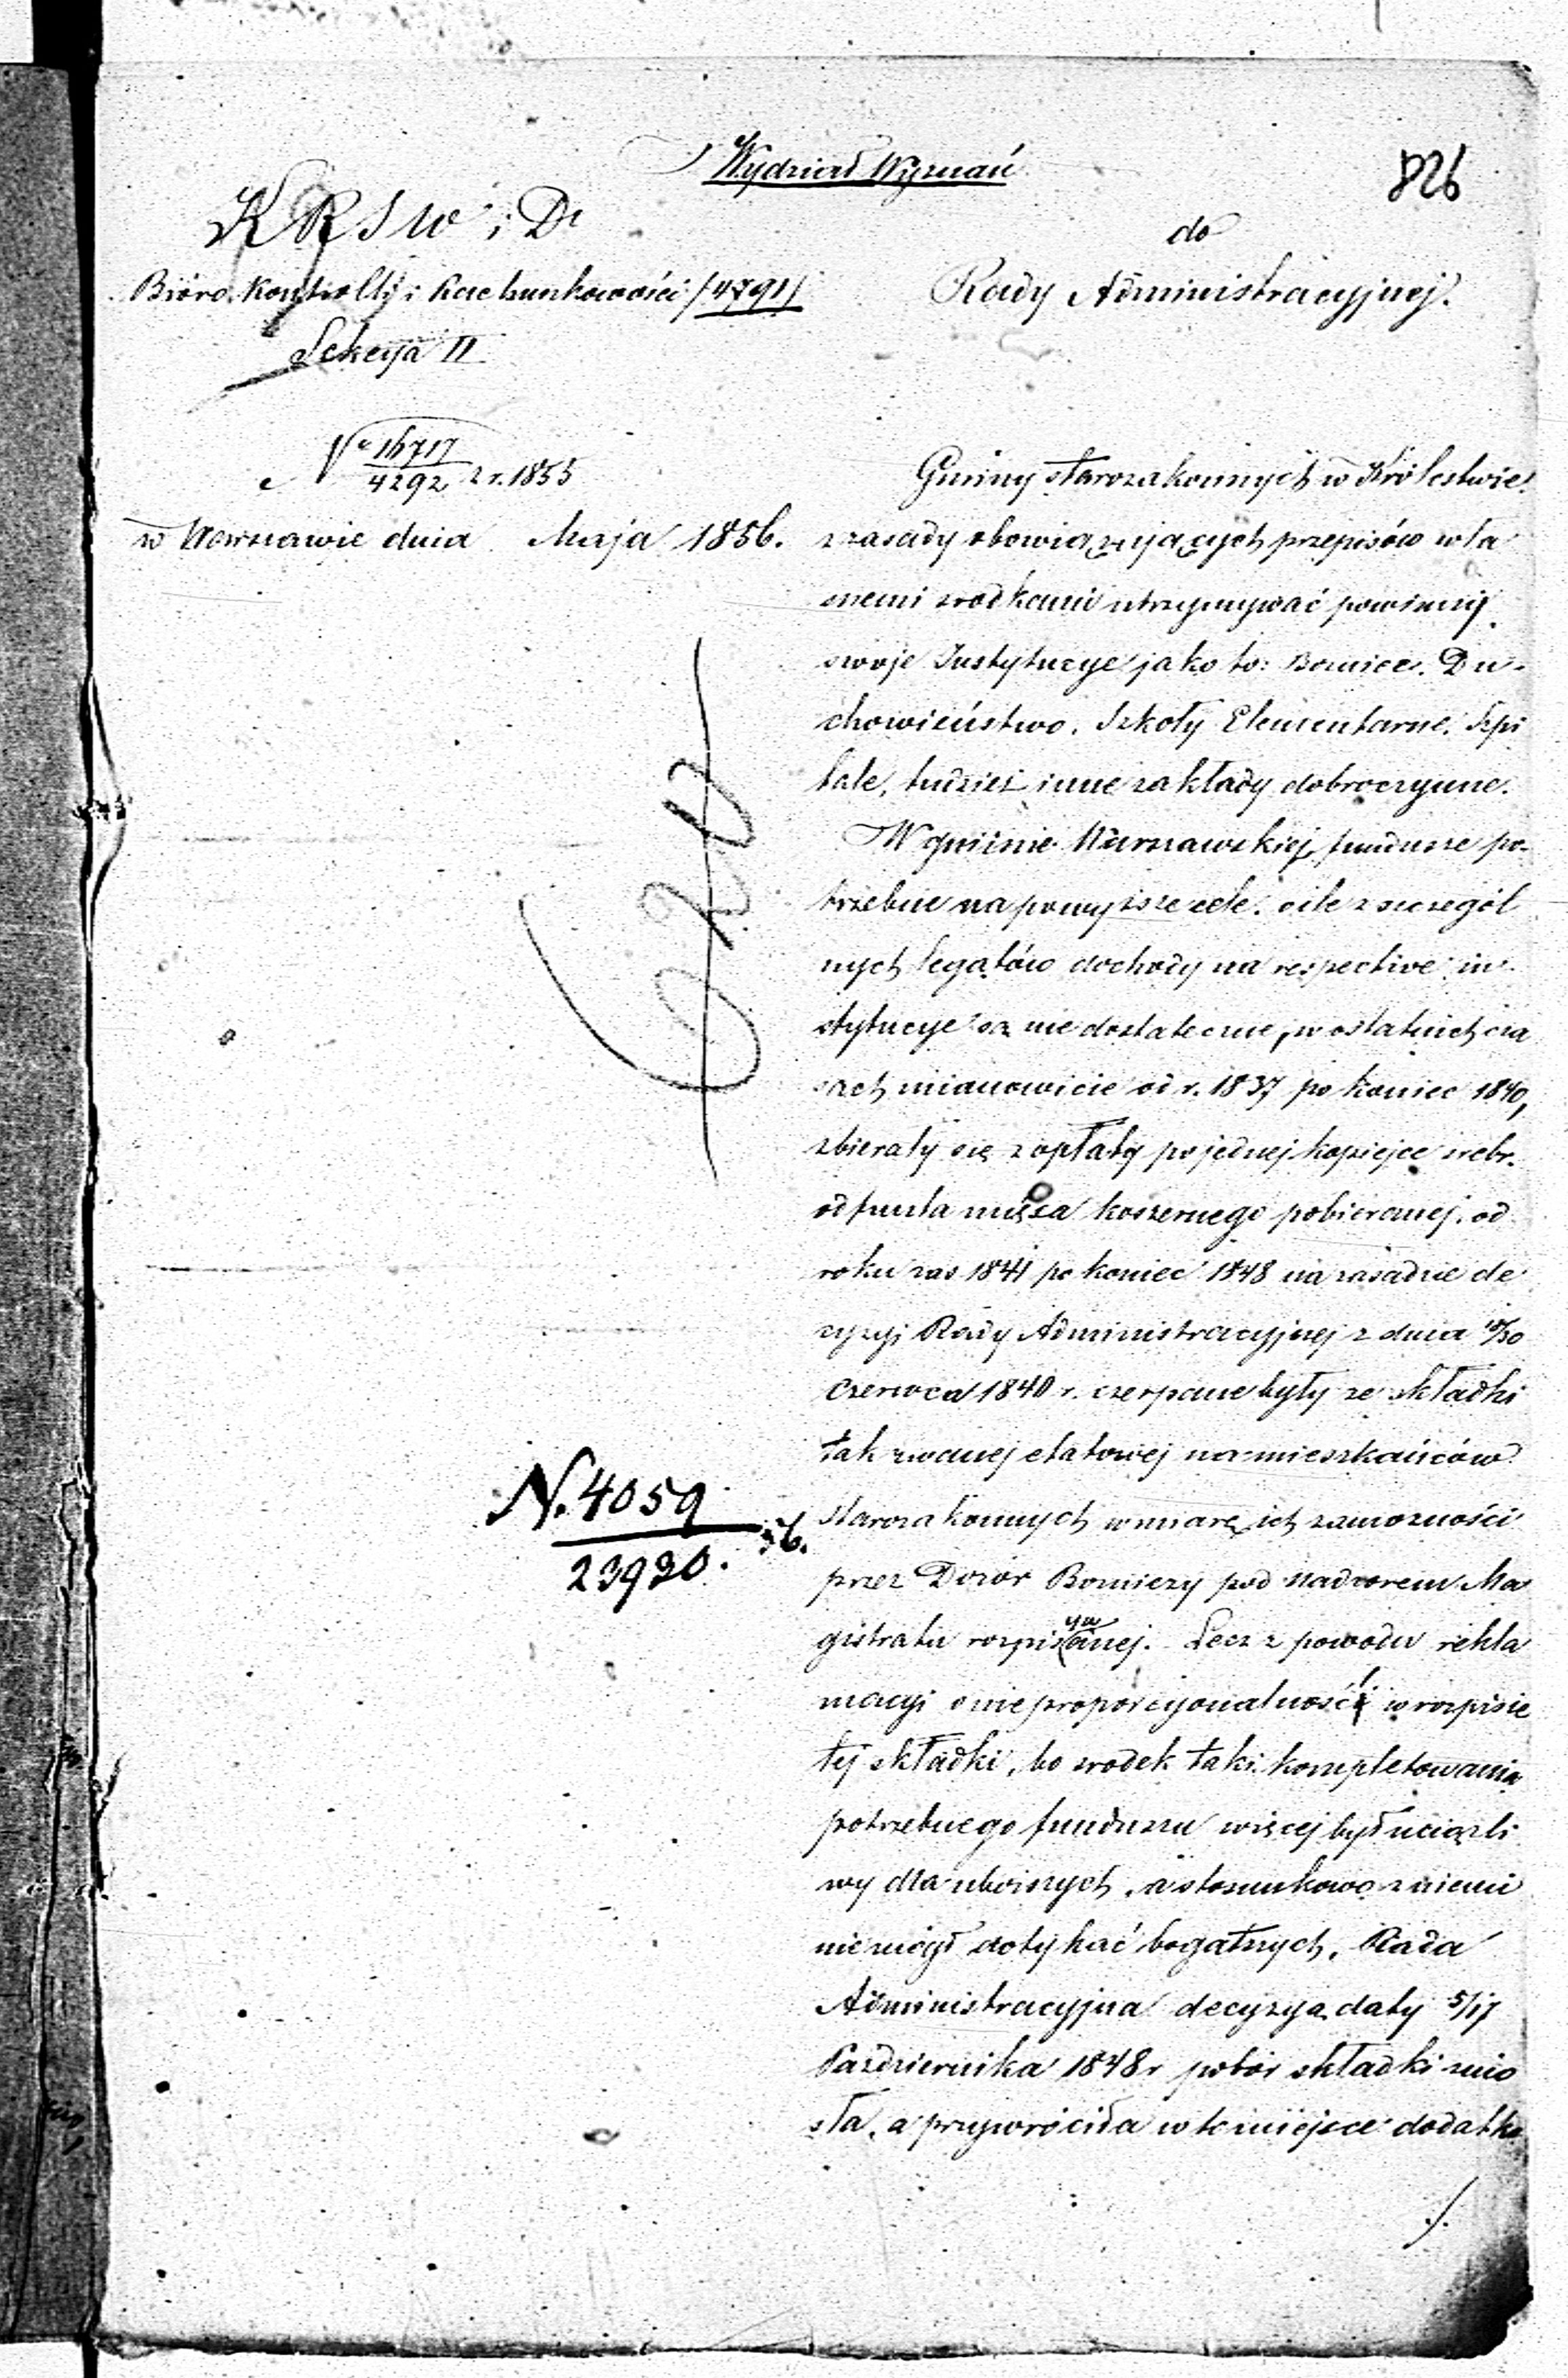 Wydział Wyznań
826
K R S W i D
do
Biuro Kontrolly i Rachunkowości /4791/
Rady Administracyjnej.
Sekcyja II
N 16717/4292 z r. 1855
w Warszawie dnia Maja 1856.
Gminy starozakonnych w Królestwie
z zasady obowiązujących przepisów wła
snemi srodkami utrzymywać powinny
swoje Instytucye jako to: Boznice. Du-
chowieństwo. Szkoły Elementarne. Szpi
tale, tudzież inne zakłady dobroczynne.
W gminie Warszawskiej fundusze po-
trzebne na powyższe cele. o ile z szczegól
nych legatów dochody na respective in-
stytucye są niedostateczne, w ostatnich cza
sach mianowicie od r. 1837 po koniec 1840,
zbierały się z opłaty po jednej kopiejce srebr.
od funta mięsa koszernego pobieranej. od
roku zas 1841 po koniec 1848 na zasadzie de
cyzyi Rady Administracyjnej z dnia 18/30
Czerwca 1840 r. czerpane były ze składki
tak zwanej etatowej na mieszkańców
starozakonnych w miarę ich zamozności
przez Dozór Bozniczy pod nadzorem Ma
gistratu rozpisanej. Lecz z powodu rekla
yw
macyi o nieproporcyonalności w rozpisie
tej składki, bo srodek taki kompletowania
potrzebnego funduszu więcej był uciązli
wy dla uboższych, a stosunkowo z niemi
nie mógł dotykać bogatszych, Rada
Administracyjna decyzyą daty 5/17
Października 1848 r pobór składki znio
sła, a przywróciła w to miejsce dodatko
N. 4059
23920. 56.
./.